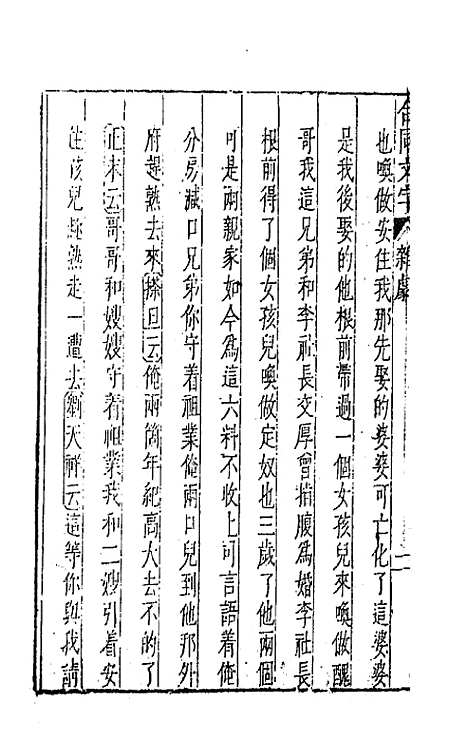 合同文字 雜劇
也喚做安住我那先娶的婆婆可亡化了這婆婆
是我後娶的他根前帶過一個女孩兒來喚做醜
哥我這兄弟和李社長交厚曾指腹為婚李社長
根前得了個女孩兒喚做定奴也三歲了他兩個
可是兩親家如今為這六料不收上司言語着俺
分房減口兄弟你守着祖業俺兩口兒到他那外
府趕熟去來搽旦云俺兩箇年紀高大去不的了
正末云哥哥和嫂嫂守着祖業我和二嫂引着安
住孩兒趕熟走一遭去劉天祥云這等你與我請